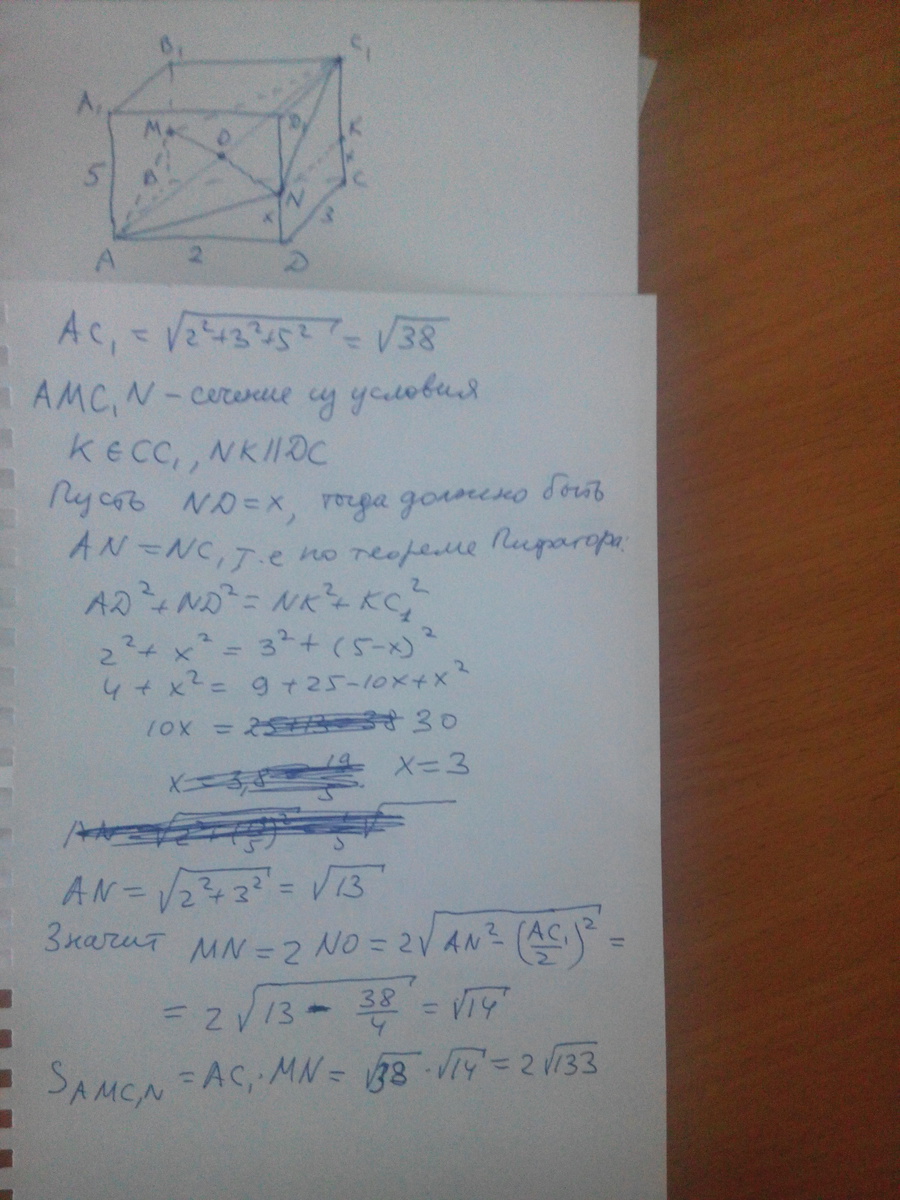 B₁ C₁
A₁ D₁
M O K
5 B N x C
x 3
A 2 D
AC₁ = √(2²+3²+5²) = √38
AMC₁N – сечение из условия
K ∈ CC₁, NK || DC
Пусть ND = x, тогда должно быть
AN = NC₁ т.е по теореме Пифагора:
AD² + ND² = NK² + KC₁²
2² + x² = 3² + (5-x)²
4 + x² = 9 + 25 - 10x + x²
10x = 30
x = 3
AN = √(2²+3²) = √13
Значит MN = 2 NO = 2√(AN² - (AC₁/2)²) =
= 2√(13 - 38/4) = √14
S_AMC₁N = AC₁ · MN = √38 · √14 = 2√133